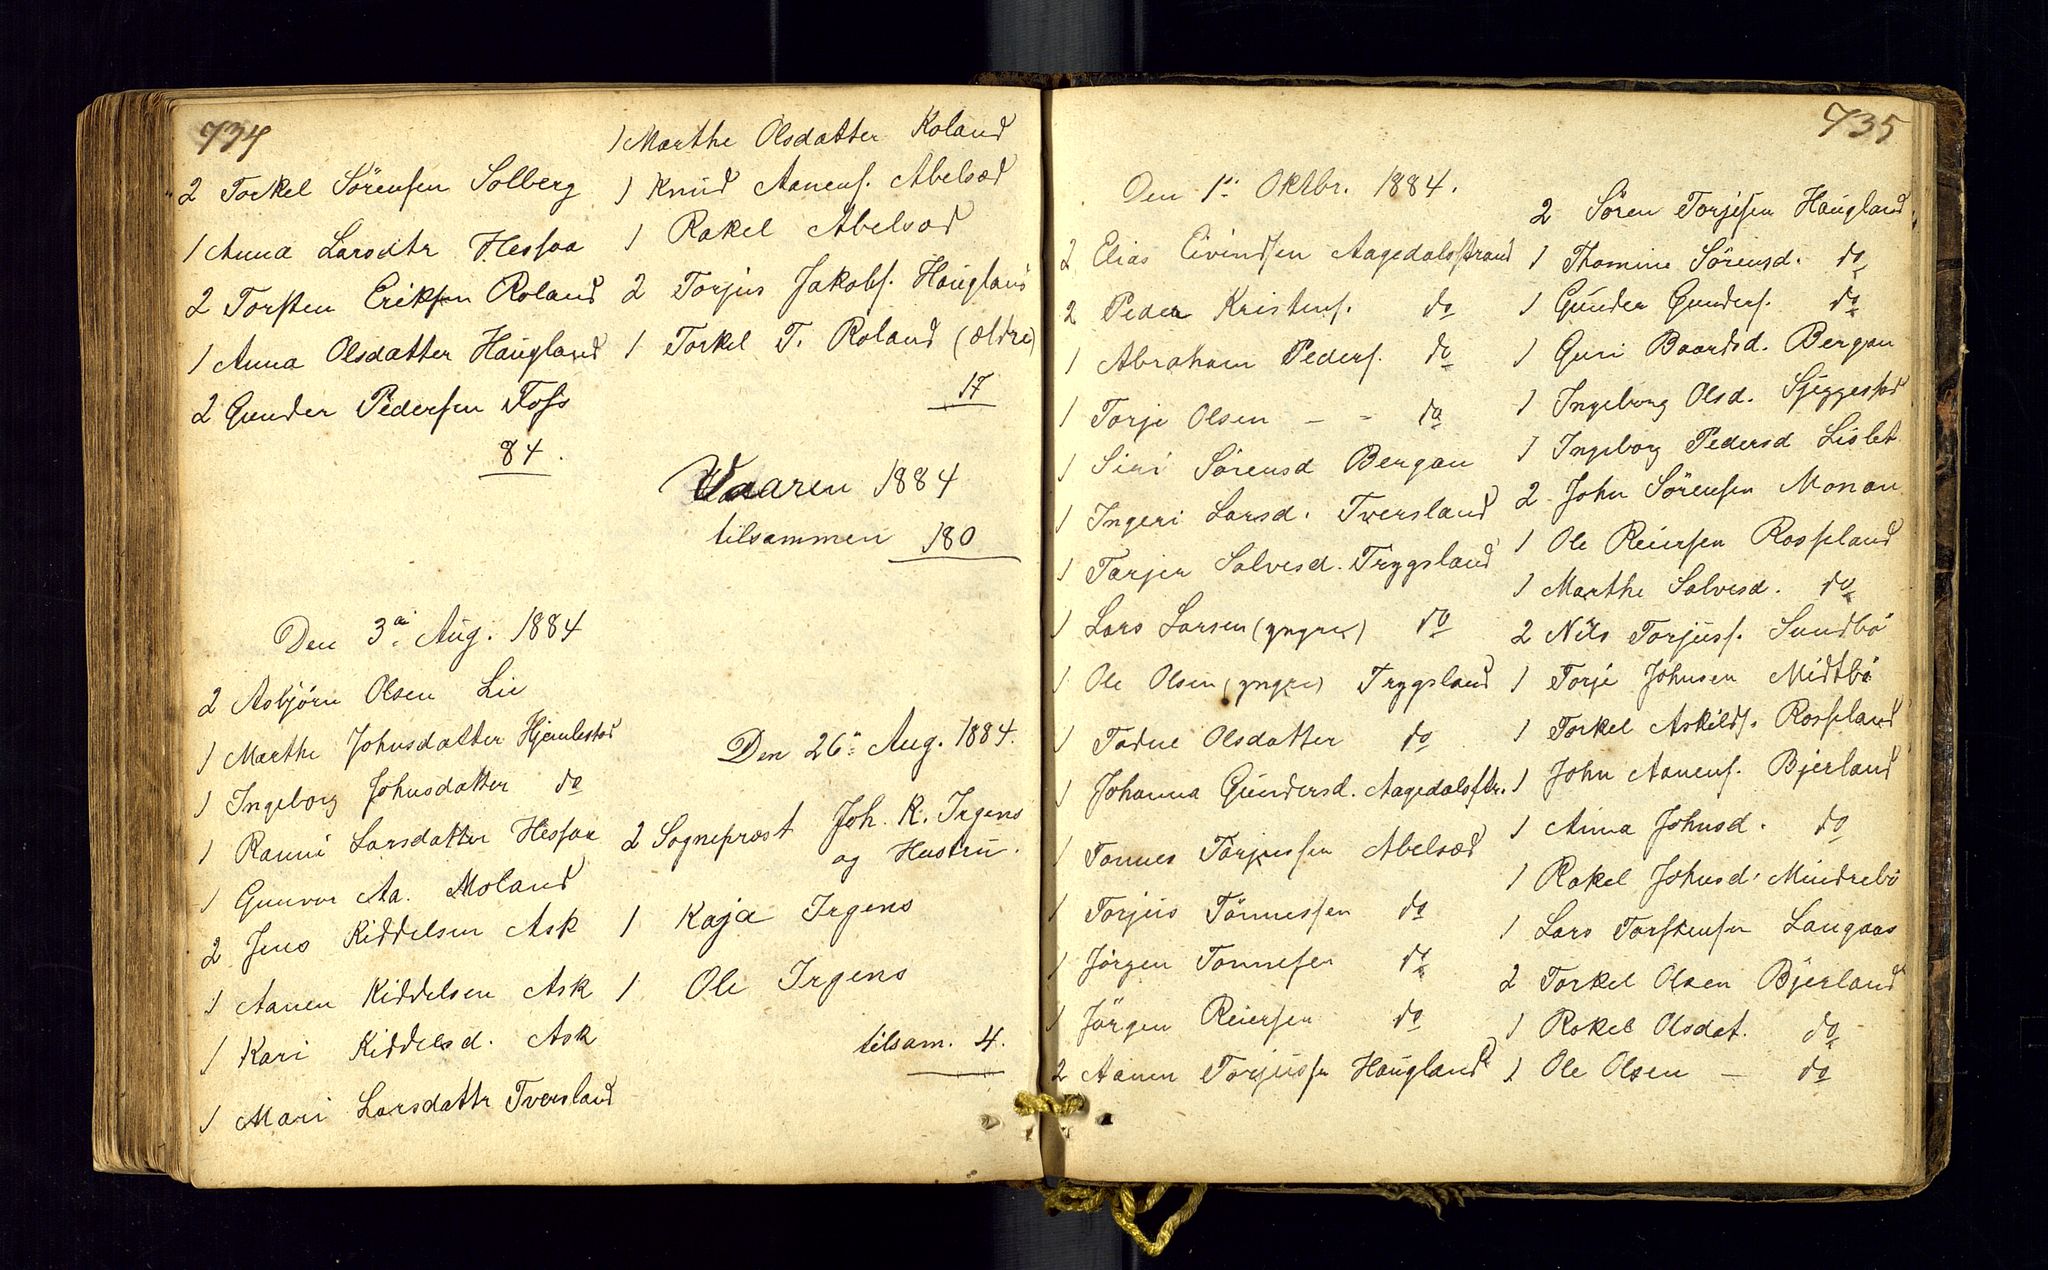 734
2 Torkel Sörensen Solberg
1 Anna Larsdtr Hessaa
2 Torsten Eriksen Roland
1 Anna Olsdatter Haugland
2 Gunder Pedersen Foss
84.
Den 3de Aug. 1884
2 Asbjörn Olsen Lie
1 Marthe Johnsdatter Hjemlestad
1 Ingeborg Johnsdatter do
1 Ranni Larsdatter Hessaa
1 Gunvor Aa. Moland
2 Jens Kiddelsen Ask
1 Aanen Kiddelsen Ask
1 Kari Kiddelsd. Ask
1 Mari Larsdattr Tversland
1 Marthe Olsdatter Roland
1 Knud Aanens. Abelsæd
1 Rakel Abelsæd
2 Torjus Jakobs. Haugland
1 Torkel T. Roland (ældre)
17
Vaaren 1884
tilsammen 180
Den 26de Aug. 1884.
2 Sognepræst Joh. K. Irgens
og Hustru.
1 Kaja Irgens
1 Ole Irgens
tilsam. 4.
735
Den 1ste Oktbr. 1884.
2 Elias Eivindsen Aagedalsstrand
2 Peder Kristens. do
1 Abraham Peders. do
1 Torje Olsen - - do
1 Siri Sörensd Bergan
1 Ingeri Larsd. Tversland
1 Tarjer Salvesd. Trygsland
1 Lars Larsen (yngre) do
1 Ole Olsen (yngre) Trygsland
1 Tadne Olsdatter do
1 Johanna Gundersd. Aagedalsstr.
1 Tönnes Torjussen Abelsæd
1 Torjus Tönnessen do
1 Jörgen Tönnesen do
1 Jörgen Reiersen do
2 Aanen Torjussn Haugland
2 Sören Torjesen Haugland
1 Thomine Sörensd. do
1 Gunder Gunders. do
1 Guri Baardsd. Bergan
1 Ingeborg Olsd. Skjeggestad
1 Ingeborg Pedersd Lislet
2 John Sörensen Monan
1 Ole Reiersen Rosseland
1 Marthe Salvesd. do
2 Nils Torjuss. Sundbö
1 Torje Johnsen Midtbö
1 Torkel Askilds. Rosseland
1 John Aanens. Bjerland
1 Anna Johnsd. do
1 Rakel Johnsd. Mindrebö
1 Lars Torstensen Langaas
2 Torkel Olsen Bjerland
1 Rakel Olsdat. do
1 Ole Olsen - do